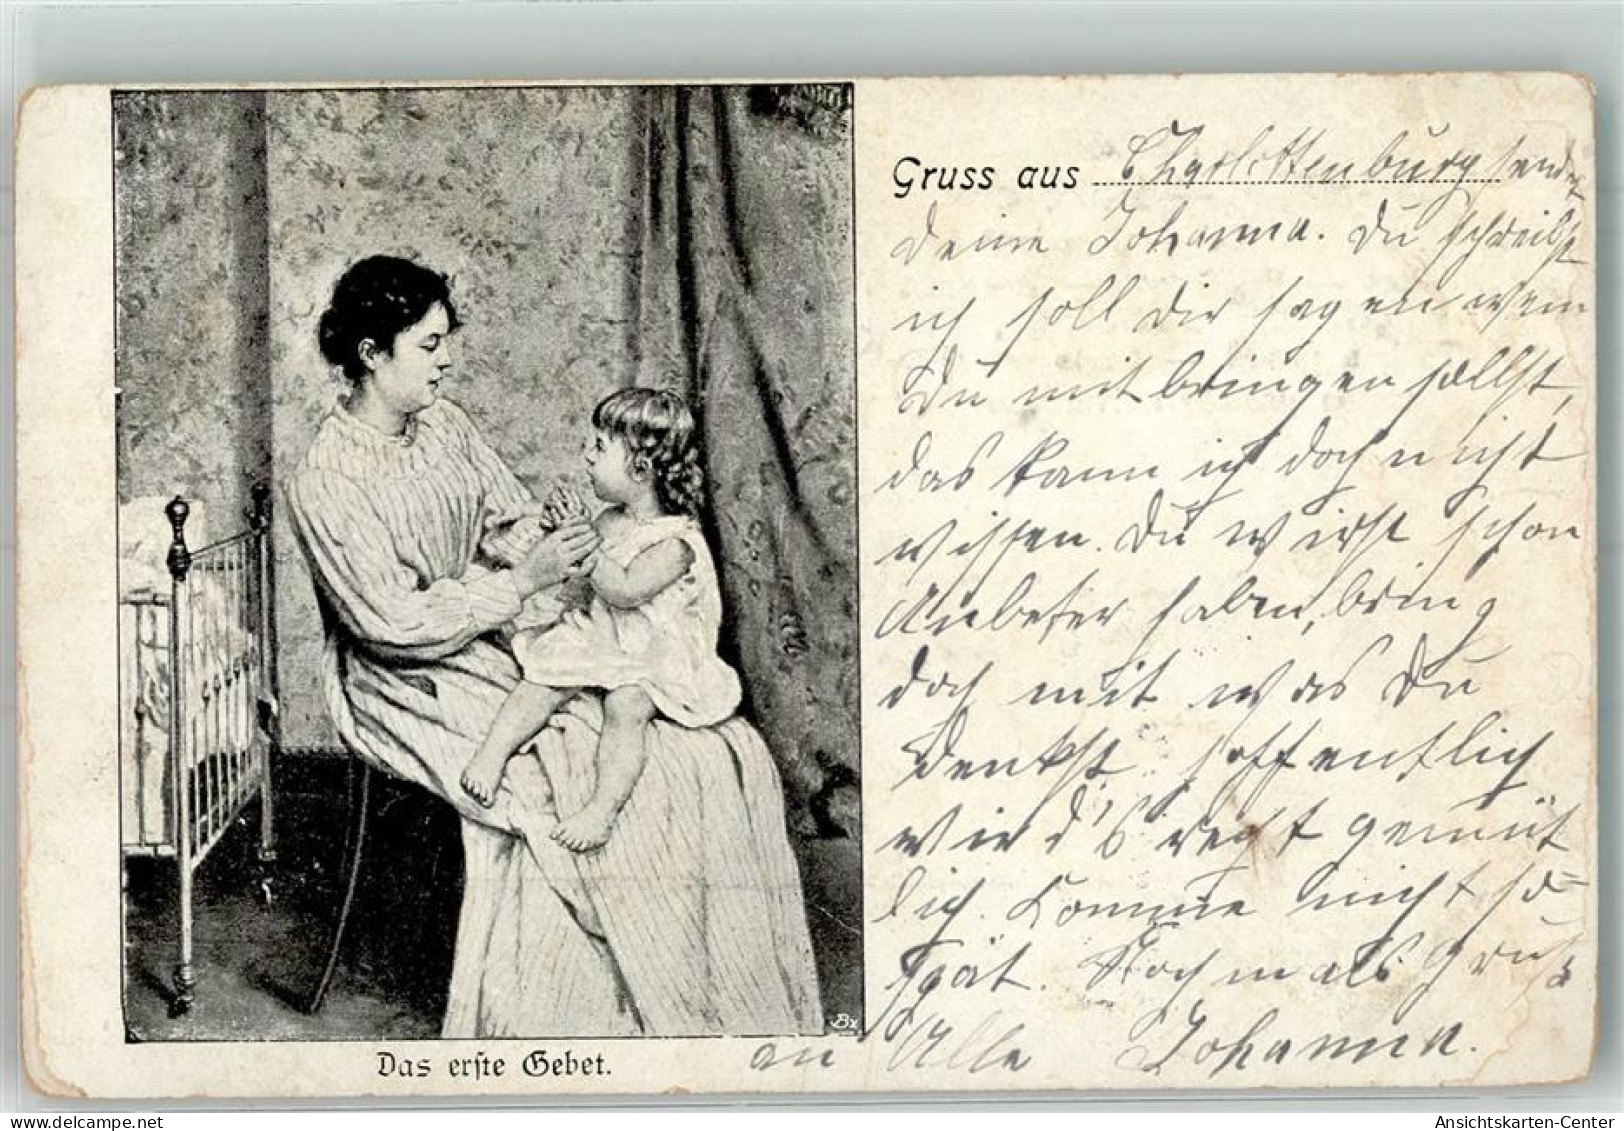 Gruss aus Charlottenburg sendet
deine Johanna. Du schreibst
ich soll dir sagen wem
Du mitbringen sollst,
das kann ich doch nicht
wissen. Du wirst schon
Anbeter haben, bring
doch mit was Du
denkst hoffentlich
wird's recht gemüt
lich. Komme nicht so
spät. Nochmals Gruß
an Alle Johanna.
Das erste Gebet.
Ansichtskarten-Center